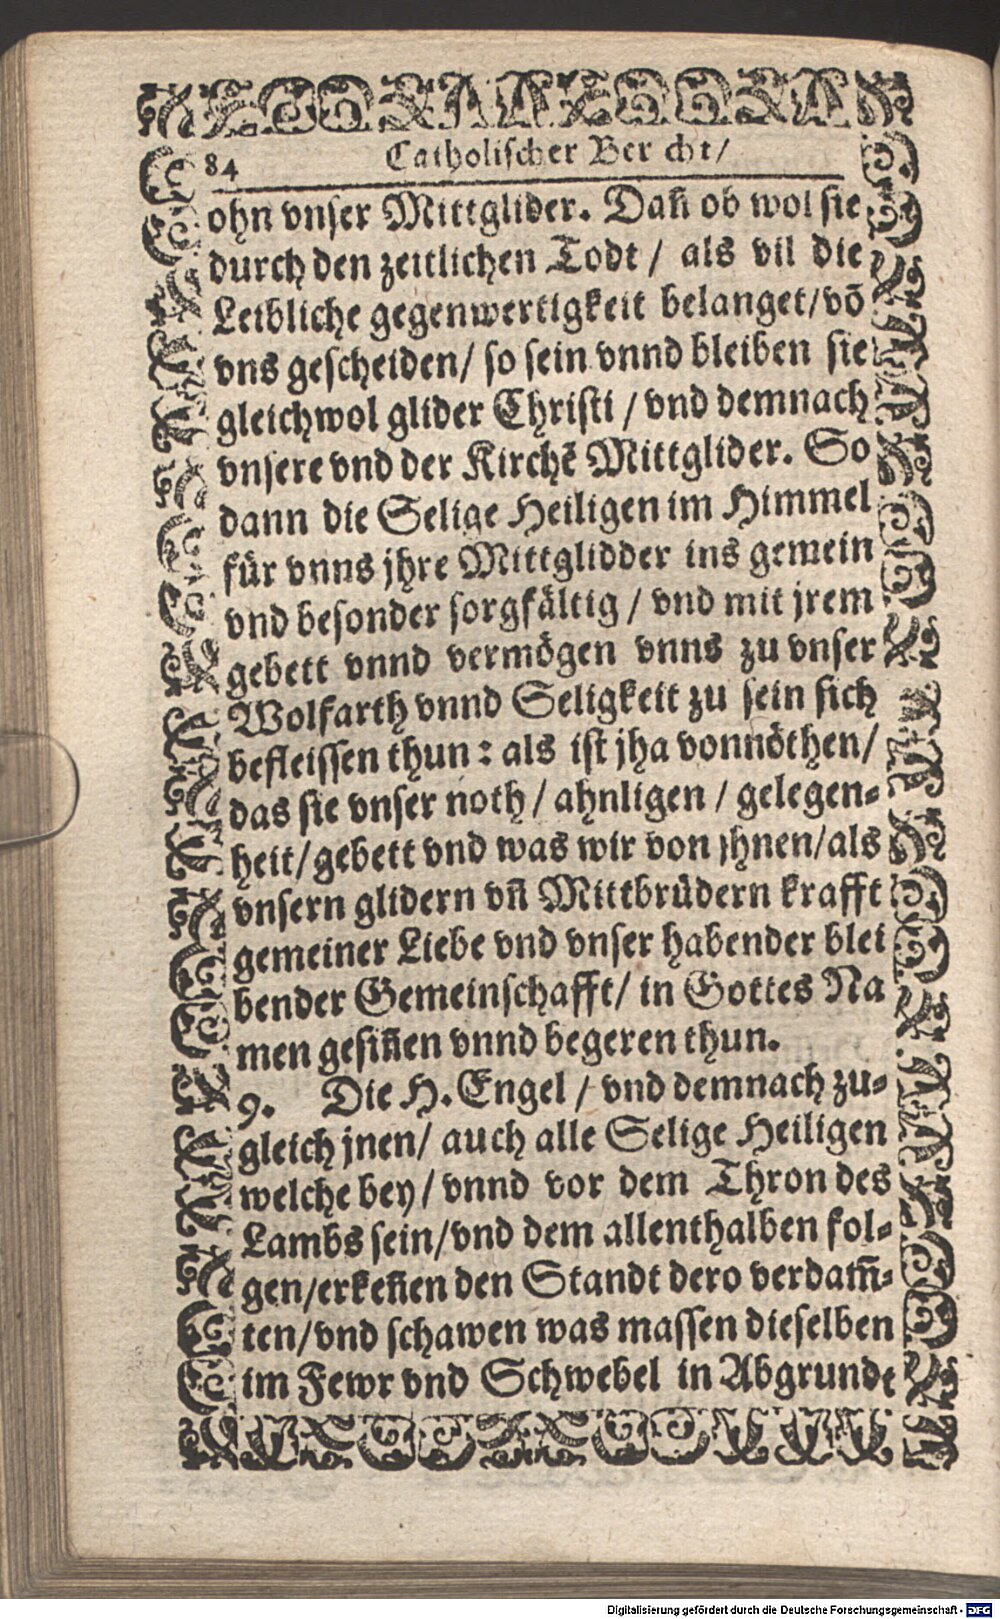 84 Catholischer Bericht/
ohn vnser Mittglider. Dañ ob wol sie
durch den zeitlichen Todt / als vil die
Leibliche gegenwertigkeit belanget/võ
vns gescheiden/ so sein vnnd bleiben sie
gleichwol glider Christi / vnd demnach
vnsere vnd der Kirchẽ Mittglider. So
dann die Selige Heiligen im Himmel
für vnns jhre Mittglidder ins gemein
vnd besonder sorgfältig / vnd mit jrem
gebett vnnd vermögen vnns zu vnser
Wolfarth vnnd Seligkeit zu sein sich
befleissen thun: als ist jha vonnöthen/
das sie vnser noth / ahnligen / gelegen-
heit/gebett vnd was wir von jhnen/als
vnsern glidern vñ Mittbrüdern krafft
gemeiner Liebe vnd vnser habender blei
bender Gemeinschafft/ in Gottes Na
men gesiñen vnnd begeren thun.
9. Die H. Engel / vnd demnach zu-
gleich jnen/ auch alle Selige Heiligen
welche bey / vnnd vor dem Thron des
Lambs sein/vnd dem allenthalben fol-
gen/erkeñen den Standt dero verdam̃-
ten/vnd schawen was massen dieselben
im Fewr vnd Schwebel in Abgrundt
Digitalisierung gefördert durch die Deutsche Forschungsgemeinschaft - DFG